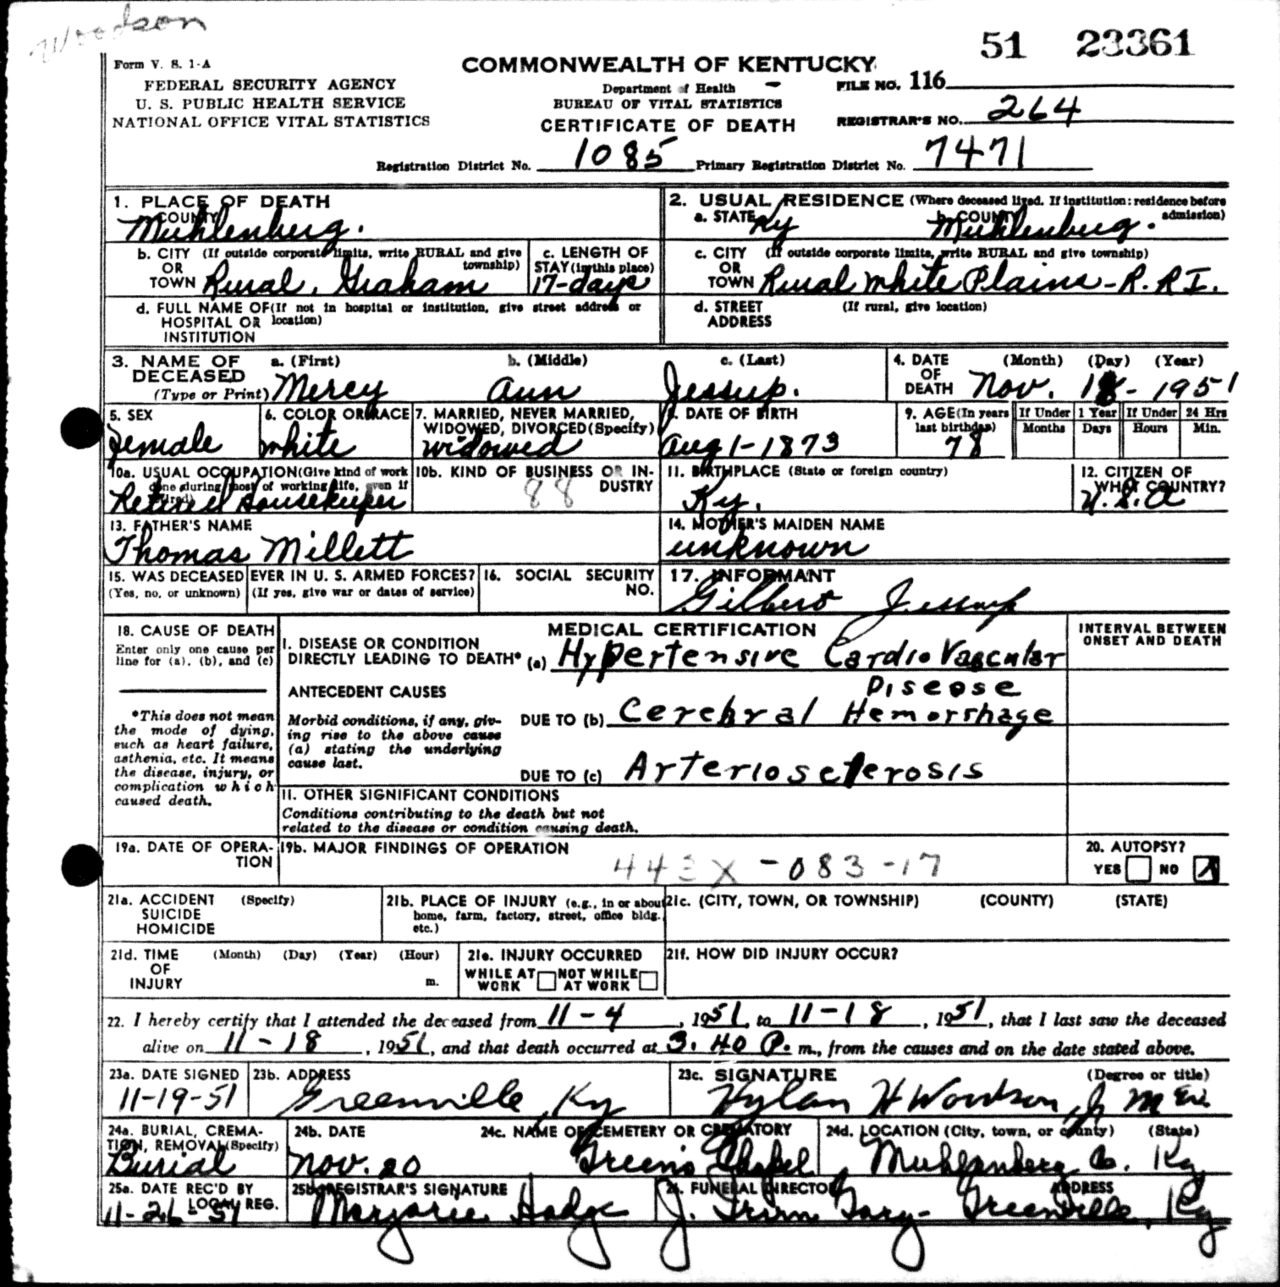 Woodson
51 23361
Form V. S. 1-A
FEDERAL SECURITY AGENCY
U. S. PUBLIC HEALTH SERVICE
NATIONAL OFFICE VITAL STATISTICS
COMMONWEALTH OF KENTUCKY
Department of Health
BUREAU OF VITAL STATISTICS
CERTIFICATE OF DEATH
FILE NO. 116
REGISTRAR'S NO. 264
Registration District No. 1085 Primary Registration District No. 7471
1. PLACE OF DEATH
a. COUNTY
Muhlenberg.
2. USUAL RESIDENCE (Where deceased lived. If institution: residence before admission)
a. STATE Ky b. COUNTY Muhlenberg.
b. CITY (If outside corporate limits, write RURAL and give township)
OR
TOWN Rural, Graham
c. LENGTH OF STAY (in this place)
17-days
c. CITY (If outside corporate limits, write RURAL and give township)
OR
TOWN Rural White Plains-R.R I.
d. FULL NAME OF (If not in hospital or institution, give street address or location)
HOSPITAL OR
INSTITUTION
d. STREET (If rural, give location)
ADDRESS
3. NAME OF DECEASED (Type or Print)
a. (First) b. (Middle) c. (Last)
Mercy Ann Jessup.
4. DATE OF DEATH (Month) (Day) (Year)
Nov. 18-1951
5. SEX
Female
6. COLOR OR RACE
White
7. MARRIED, NEVER MARRIED, WIDOWED, DIVORCED (Specify)
widowed
8. DATE OF BIRTH
Aug 1-1873
9. AGE (In years last birthday)
78
If Under 1 Year If Under 24 Hrs
Months Days Hours Min.
10a. USUAL OCCUPATION (Give kind of work done during most of working life, even if retired)
Retired Housekeeper
10b. KIND OF BUSINESS OR INDUSTRY
88
11. BIRTHPLACE (State or foreign country)
Ky.
12. CITIZEN OF WHAT COUNTRY?
U.S.A
13. FATHER'S NAME
Thomas Millett
14. MOTHER'S MAIDEN NAME
unknown
15. WAS DECEASED EVER IN U. S. ARMED FORCES?
(Yes, no, or unknown) (If yes, give war or dates of service)
16. SOCIAL SECURITY NO.
17. INFORMANT
Gilbert Jessup
18. CAUSE OF DEATH
Enter only one cause per line for (a), (b), and (c)
*This does not mean the mode of dying, such as heart failure, asthenia, etc. It means the disease, injury, or complication which caused death.
MEDICAL CERTIFICATION
INTERVAL BETWEEN ONSET AND DEATH
I. DISEASE OR CONDITION
DIRECTLY LEADING TO DEATH* (a) Hypertensive Cardio Vascular
Disease
ANTECEDENT CAUSES
Morbid conditions, if any, giving rise to the above cause (a) stating the underlying cause last.
DUE TO (b) Cerebral Hemorrhage
DUE TO (c) Arteriosclerosis
II. OTHER SIGNIFICANT CONDITIONS
Conditions contributing to the death but not
related to the disease or condition causing death.
19a. DATE OF OPERATION
19b. MAJOR FINDINGS OF OPERATION
443X-083-17
20. AUTOPSY?
YES NO
21a. ACCIDENT (Specify)
SUICIDE
HOMICIDE
21b. PLACE OF INJURY (e.g., in or about home, farm, factory, street, office bldg. etc.)
21c. (CITY, TOWN, OR TOWNSHIP) (COUNTY) (STATE)
21d. TIME (Month) (Day) (Year) (Hour)
OF
INJURY m.
21e. INJURY OCCURRED
WHILE AT WORK NOT WHILE AT WORK
21f. HOW DID INJURY OCCUR?
22. I hereby certify that I attended the deceased from 11-4, 1951, to 11-18, 1951, that I last saw the deceased
alive on 11-18, 1951, and that death occurred at 3.40 P. m., from the causes and on the date stated above.
23a. DATE SIGNED
11-19-51
23b. ADDRESS
Greenville, Ky
23c. SIGNATURE (Degree or title)
Hylan H Woodson, Jr
24a. BURIAL, CREMATION, REMOVAL (Specify)
Burial
24b. DATE
Nov. 20
24c. NAME OF CEMETERY OR CREMATORY
Green's Chapel
24d. LOCATION (City, town, or county) (State)
Muhlenberg Co. Ky
25a. DATE REC'D BY LOCAL REG.
11-26-51
25b. REGISTRAR'S SIGNATURE
Marjorie Hodge
26. FUNERAL DIRECTOR ADDRESS
J. Trim Gary- Greenville, Ky